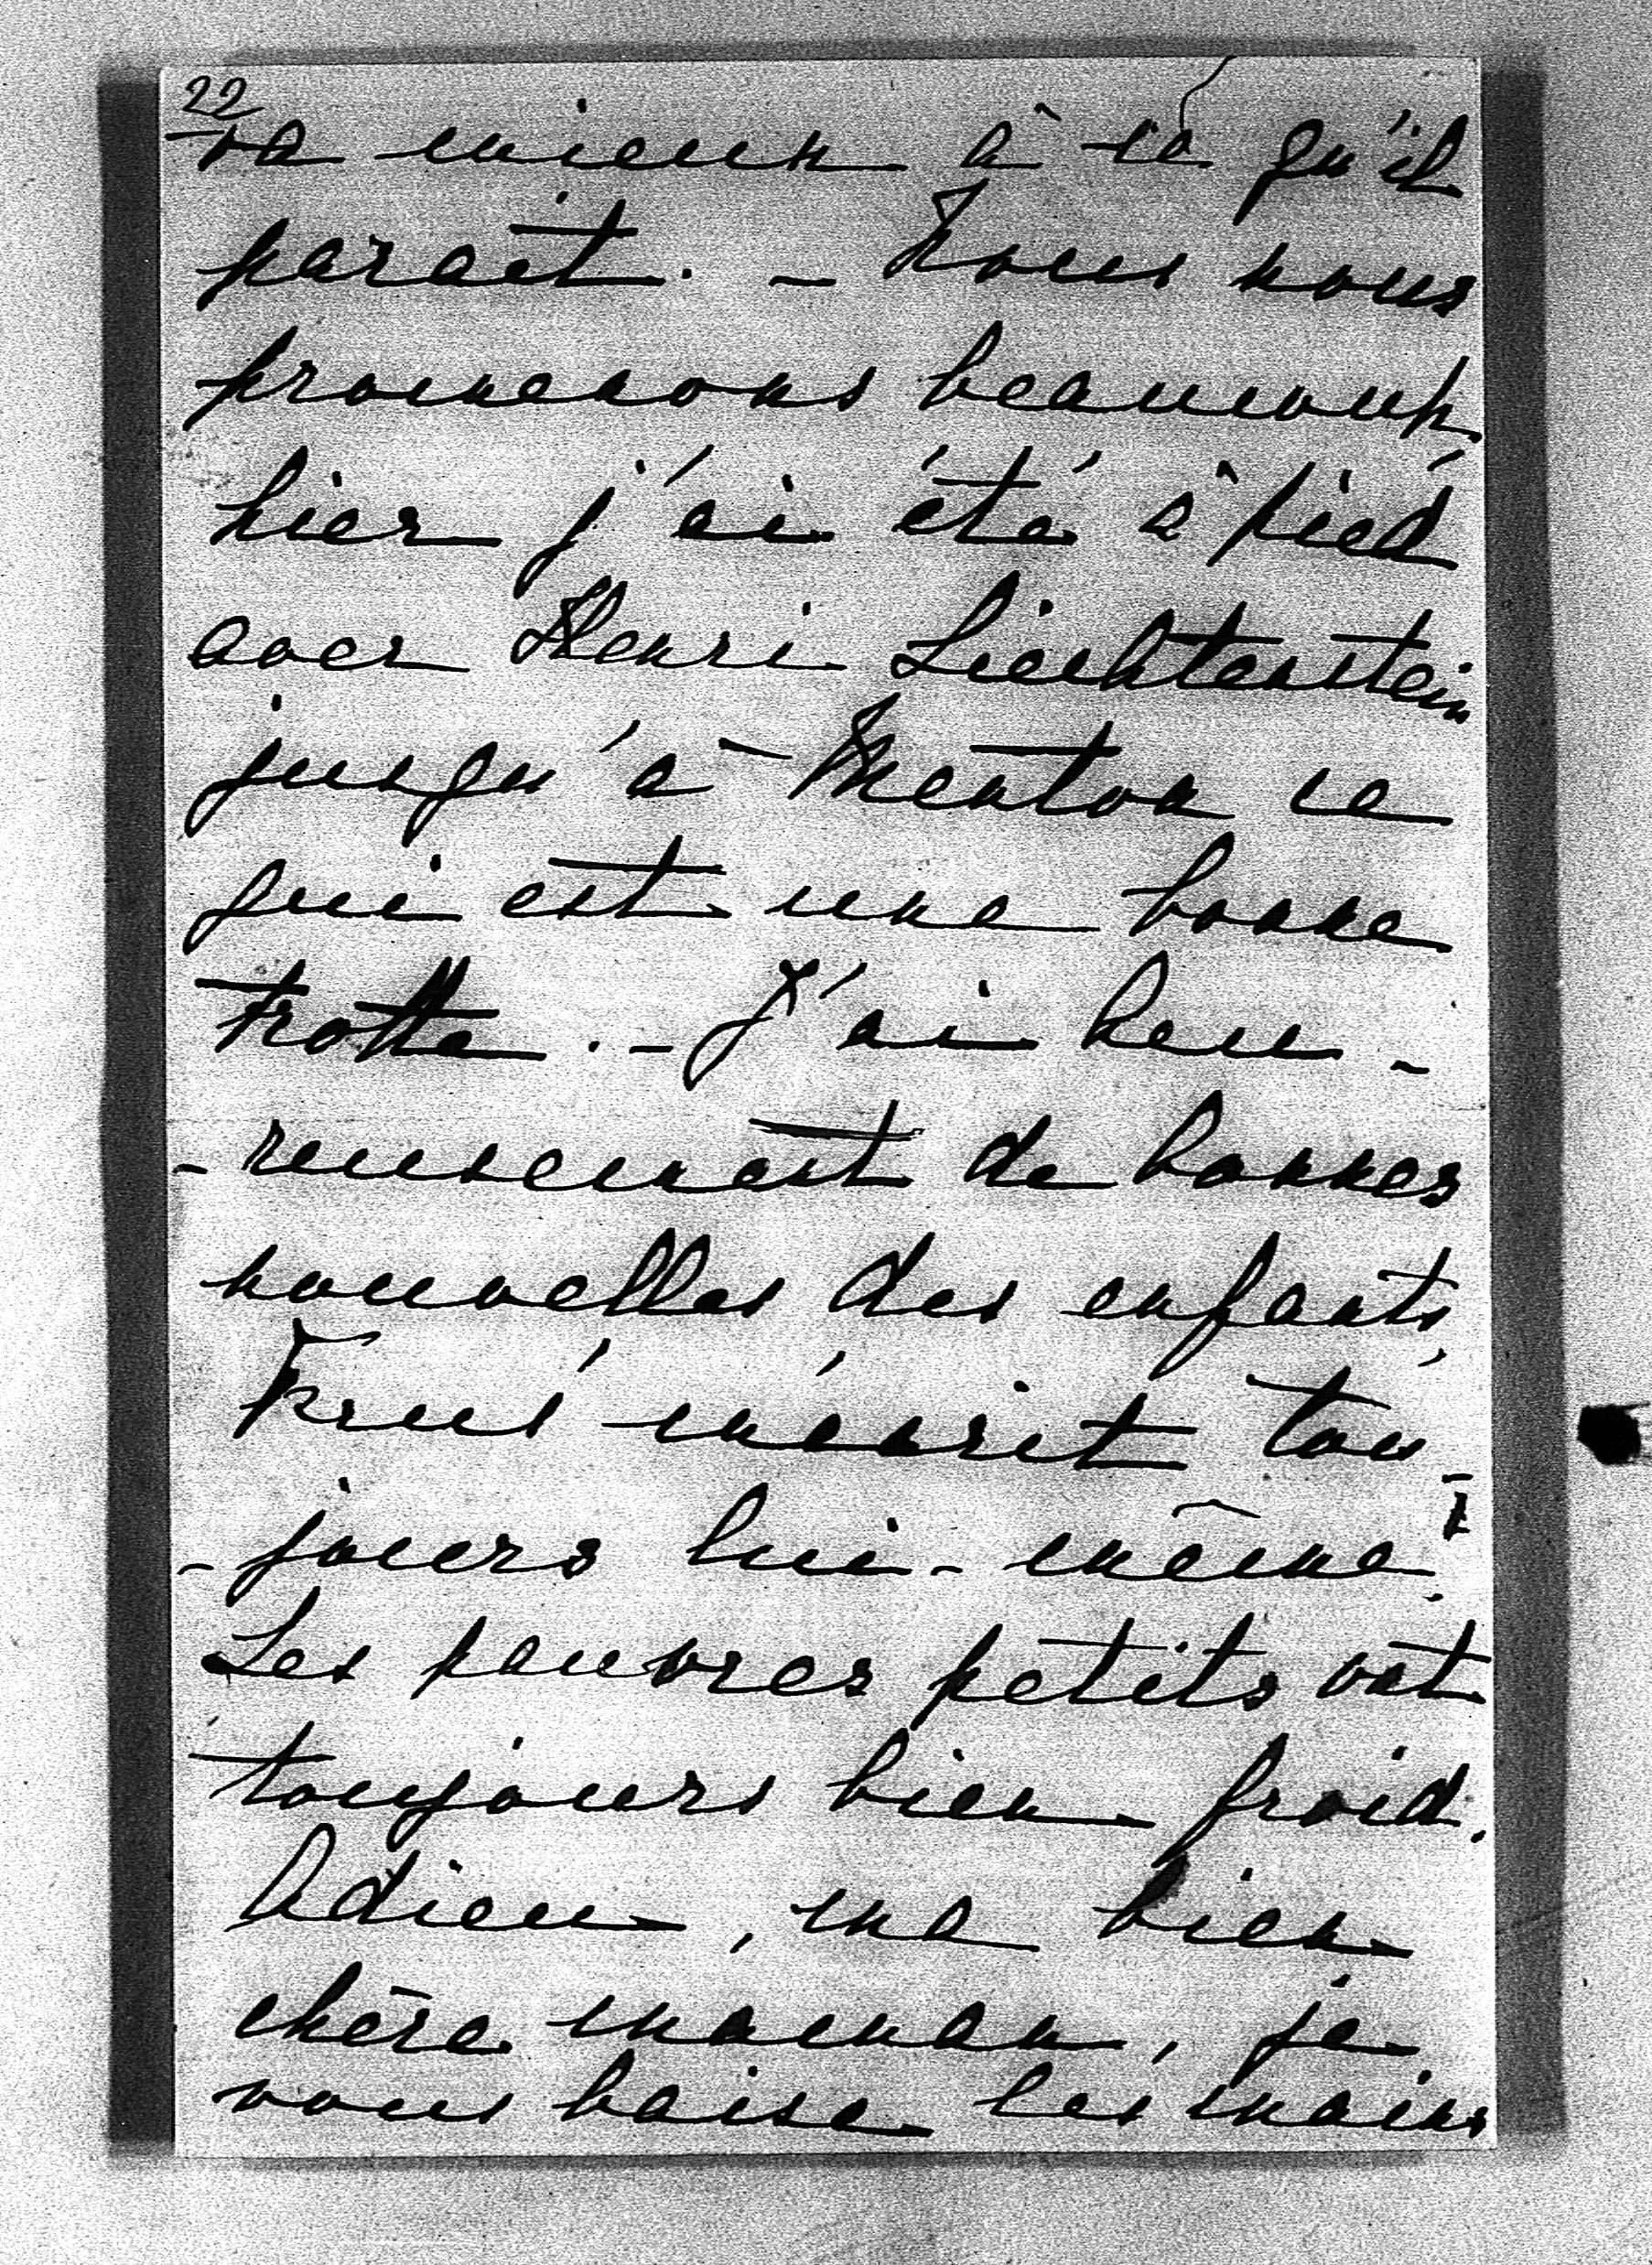 22
va mieux à ce qu'il
parait. - Nous nous
promenons beaucoup,
hier j'ai été à pied
avec Henri Liechtenstein
jusqu'à Menton ce
qui est une bonne
trotte. - J'ai heu-
-reusement de bonnes
nouvelles des enfants,
m'écrit tou-
-jours lui-même.
Les pauvres petits ont
toujours bien froid.
Adieu, ma bien
chère maman, je
vous baise les mains